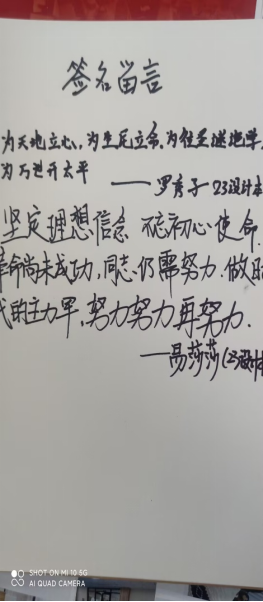 签名留言
为天地立心,为生民立命,为往圣继绝学
为万世开太平
——罗彦子 23设计本
坚定理想信念 不忘初心使命.
革命尚未成功,同志仍需努力.做时
代的主力军,努力努力再努力.
——易莎莎(23设计本
SHOT ON MI 10 5G
AI QUAD CAMERA